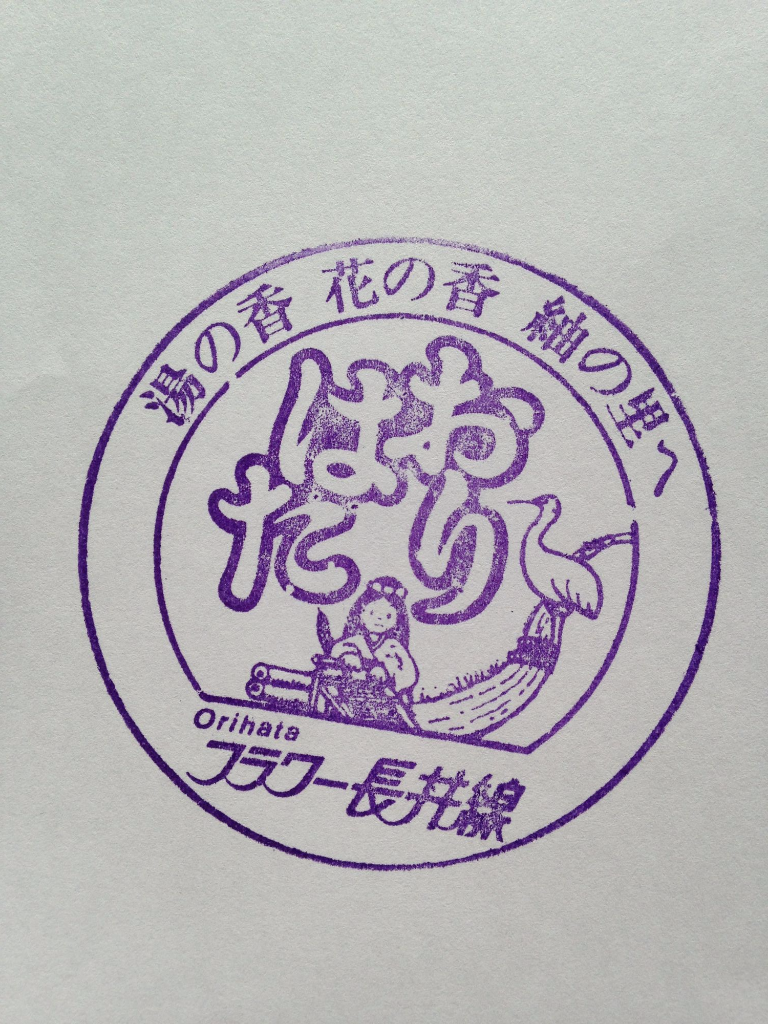 湯の香 花の香 紬の里へ
おりはた
Orihata
フラワー長井線